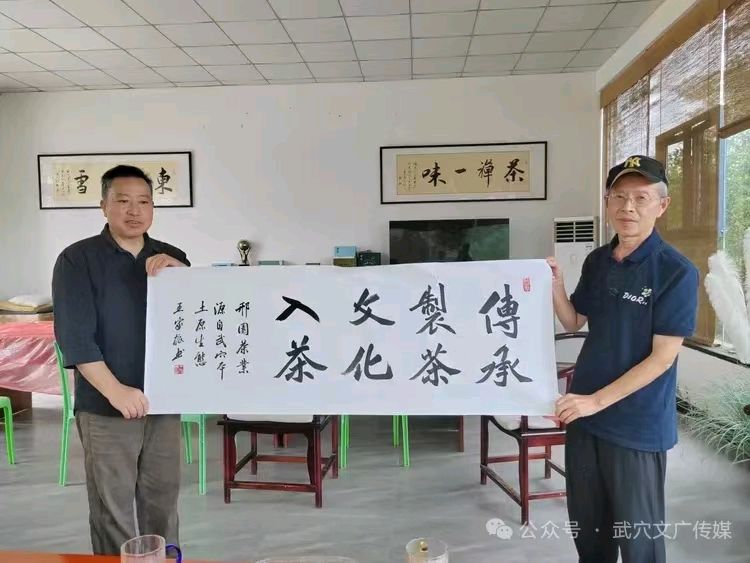 茶禪一味
東
雪
傳承
製茶
文化
入茶
邢園茶業
源自武穴本
土原生態
NY
DIOR
公众号 · 武穴文广传媒